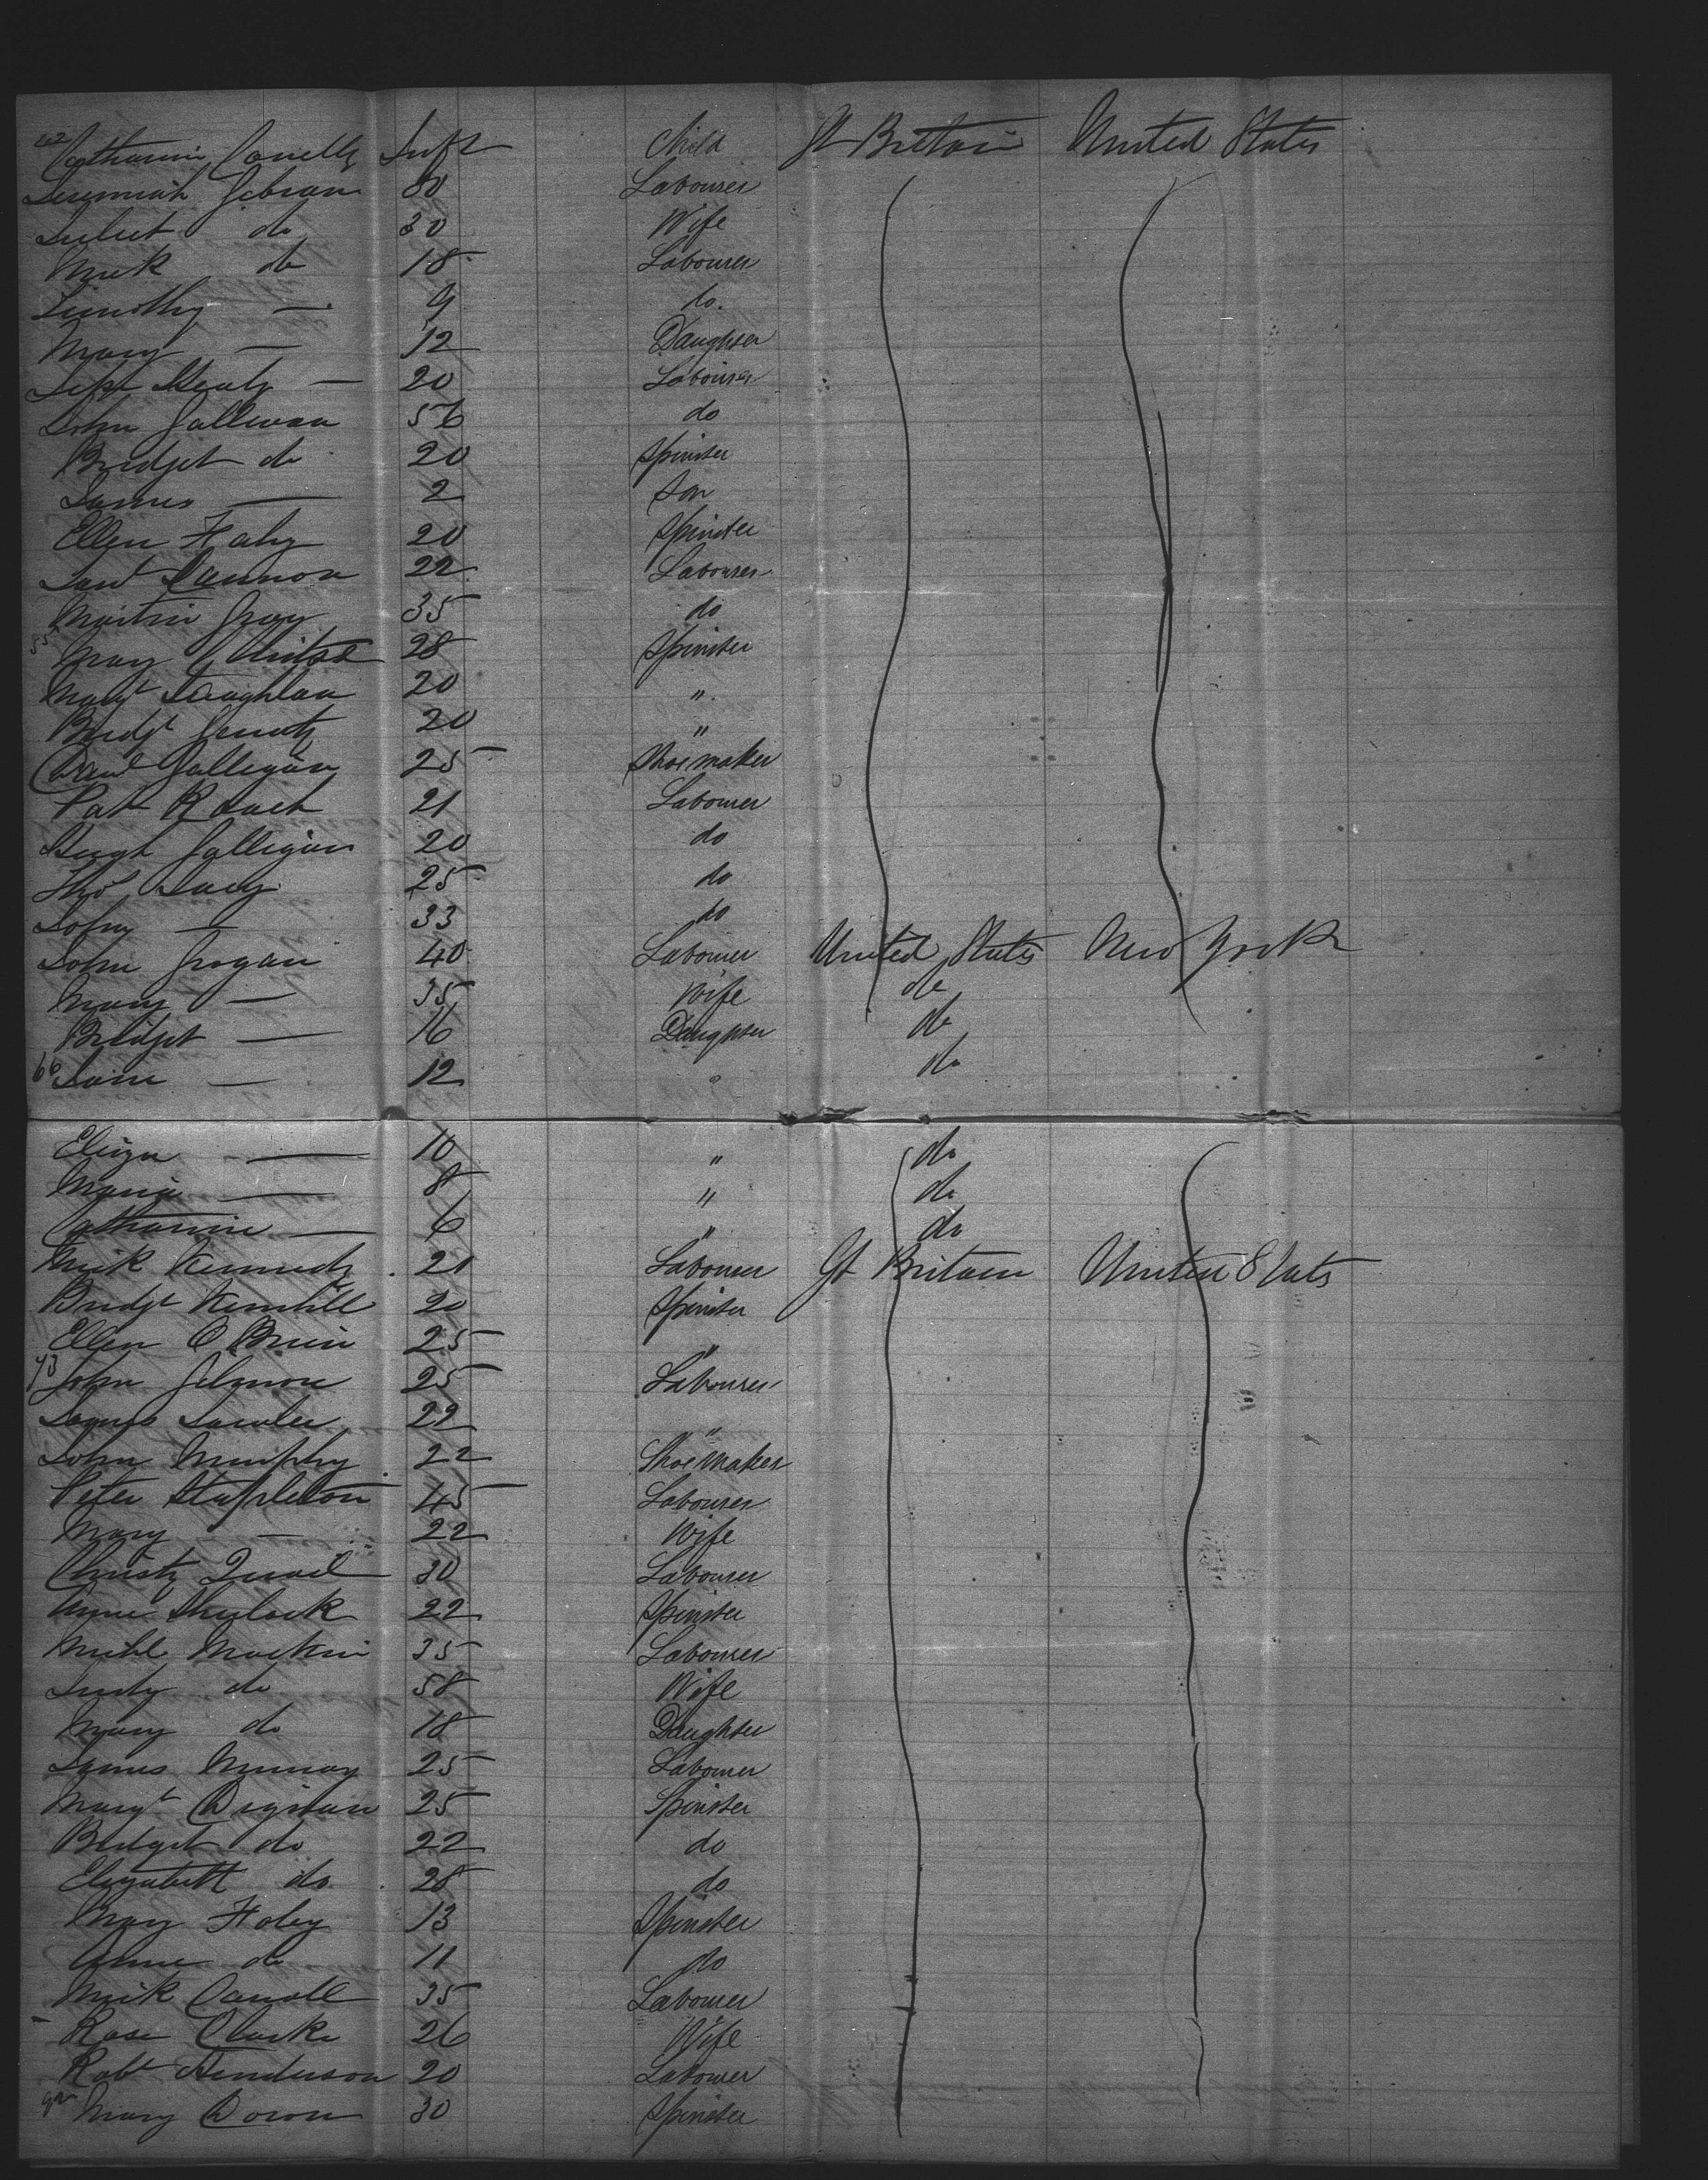 Inft Child Gt Britain United States
Jeremiah 80 Labourer
do 30 Wife
Mick do 18 Labourer
Timothy — 9 do.
Mary — 12 Daughter
20 Labourer
John Gallivan 56 do
Bridget do 20 Spinster
James — 2 Son
Ellen Fahy 20 Spinster
Cannon 22 Labourer
Martin Gray 35 do
55 Mary 28 Spinster
Margt Laughlan 20 "
Bridgt 20 "
Danl Galligan 25 Shoemaker
Pat Roach 21 Labourer
Hugh Galligan 20 do
Thos Lacy 25 do
John — 33 do
John Grogan 40 Labourer United States New York
Mary — 35 Wife do
Bridget — 16 Daughter do
66 Jane — 12 " do
Eliza — 10 " do
Maria — 8 " do
Catharine — 6 " do
Mick Kennedy 20 Labourer Gt Britain United States
Bridgt 20 Spinster
Ellen O Brien 25 "
73 John Gilmore 25 Labourer
James Lawler 22 "
John Murphy 22 Shoemaker
Peter Stapleton 45 Labourer
Mary — 22 Wife
Christy 30 Labourer
Anne Sherlock 22 Spinster
Michl 35 Labourer
Judy do 58 Wife
Mary do 18 Daughter
James Murray 25 Labourer
Margt Dignan 25 Spinster
Bridget do 22 do
Elizabeth do 28 do
Mary Foley 13 Spinster
Anne do 11 do
Mick Carroll 35 Labourer
Rose Clarke 26 Wife
Robt Henderson 20 Labourer
Mary Doron 30 Spinster